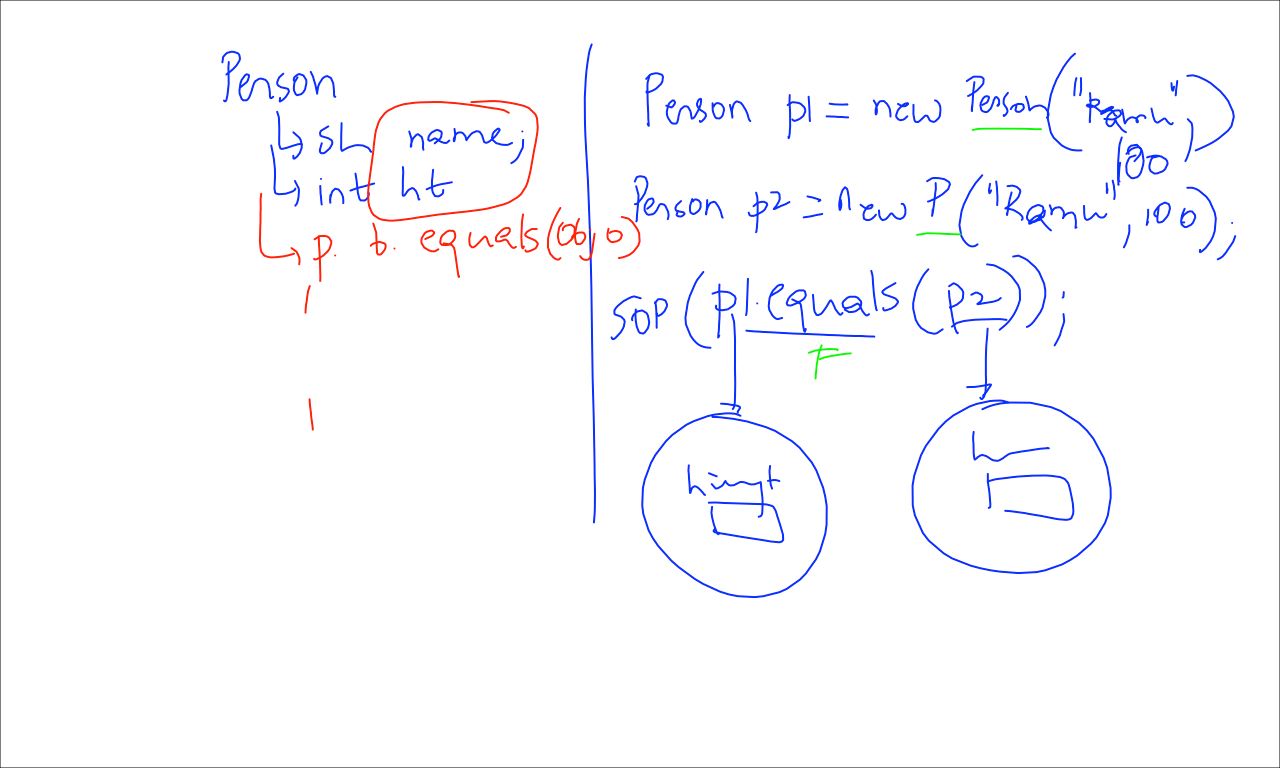 Person
str name;
int ht
p. b. equals(Obj o)
Person p1 = new Person("Ramu",
100)
Person p2 = new P("Ramu", 100);
SOP(p1.equals(p2));
F
height
h